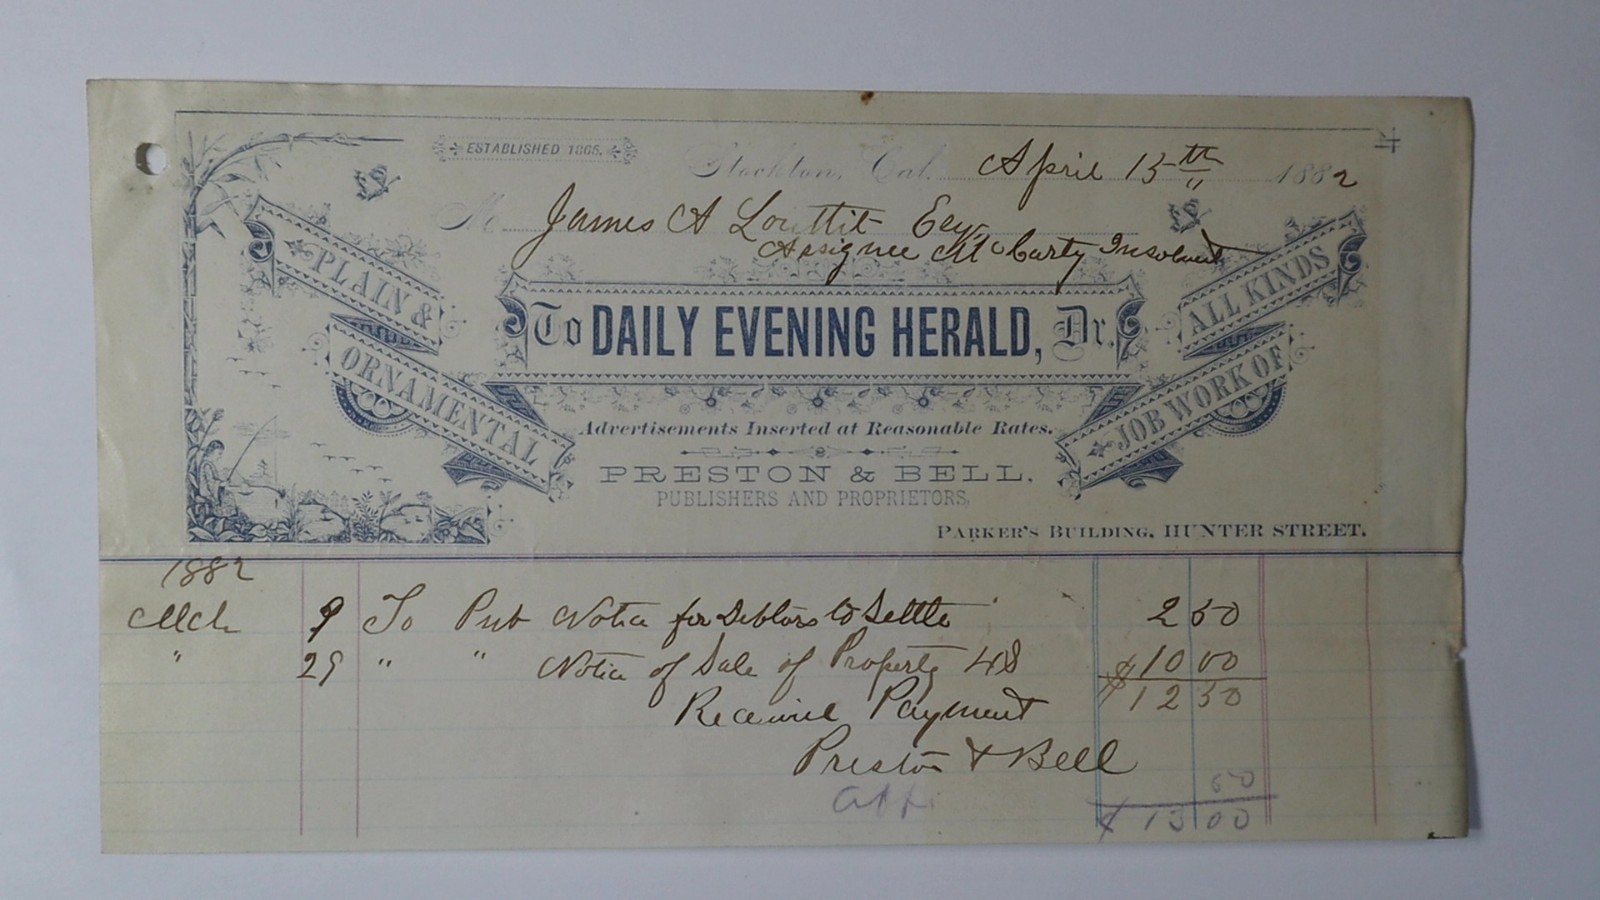 ESTABLISHED 1865.
Stockton, Cal. April 15th 1882
M James A Louttit Esq.
Assignee McCarty Insolvent
PLAIN &
ORNAMENTAL
To DAILY EVENING HERALD, Dr.
ALL KINDS
JOB WORK OF
Advertisements Inserted at Reasonable Rates.
PRESTON & BELL,
PUBLISHERS AND PROPRIETORS,
PARKER'S BUILDING, HUNTER STREET.
1882
Mch 9 To Pub Notice for Debtors to Settle 2 50
" 29 " " Notice of Sale of Property 48 10 00
$12 50
Received Payment
Preston & Bell
50
$13 00